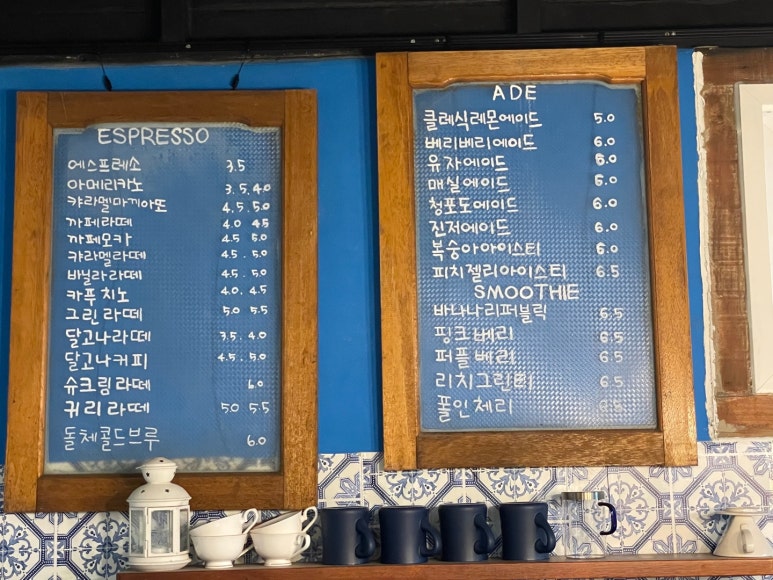 ESPRESSO
에스프레소 3.5
아메리카노 3.5, 4.0
캬라멜마끼아또 4.5. 5.0
까페라떼 4.0 4.5
까페모카 4.5 5.0
캬라멜라떼 4.5. 5.0
바닐라라떼 4.5. 5.0
카푸치노 4.0. 4.5
그린라떼 5.0 5.5
달고나라떼 3.5. 4.0
달고나커피 4.5. 5.0
슈크림라떼 6.0
귀리라떼 5.0 5.5
돌체콜드브루 6.0
ADE
클레식레몬에이드 5.0
베리베리에이드 6.0
유자에이드 6.0
매실에이드 6.0
청포도에이드 6.0
진저에이드 6.0
복숭아아이스티 6.0
피치젤리아이스티 6.5
SMOOTHIE
바나나리퍼블릭 6.5
핑크베리 6.5
퍼플베리 6.5
리치그린티 6.5
폴인체리 6.5